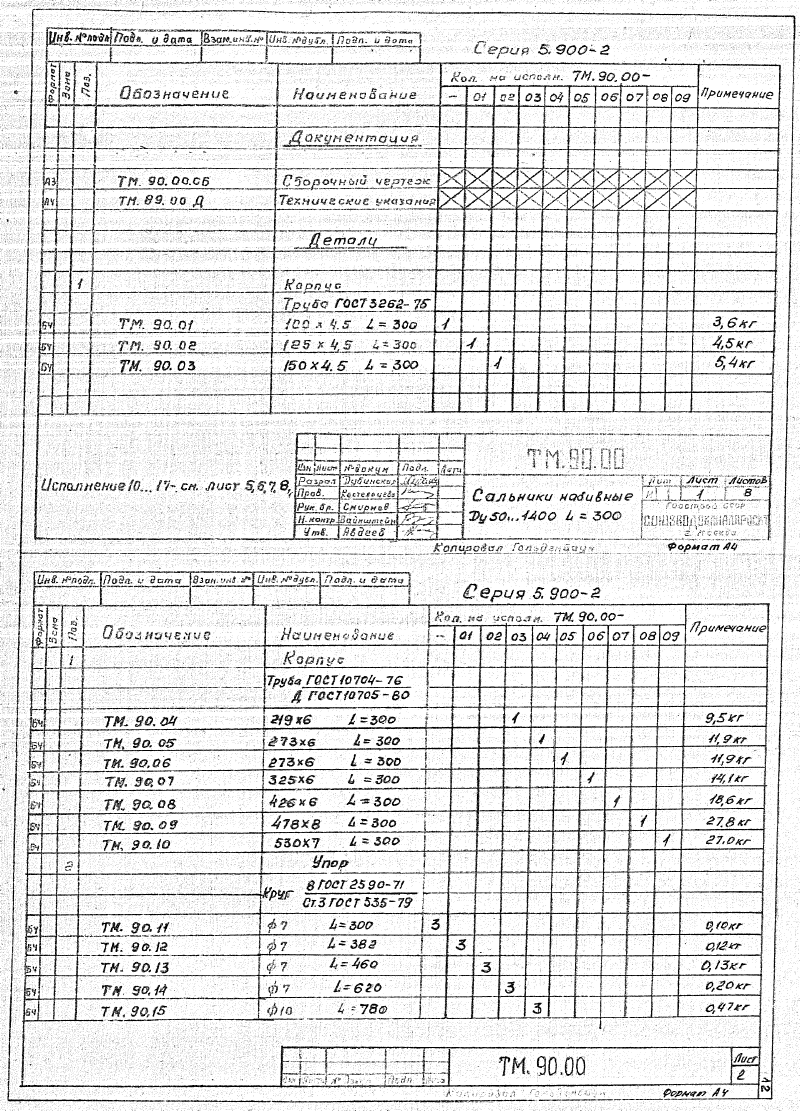 Инв. № подл. Подп. и дата Взам. инв. № Инв. № дубл. Подп. и дата
Серия 5.900-2
Формат Зона Поз. Обозначение Наименование Кол. на исполн. ТМ.90.00- Примечание
- 01 02 03 04 05 06 07 08 09
Документация
А3 ТМ. 90.00.СБ Сборочный чертеж
А4 ТМ. 89.00 Д Технические указания
Детали
1 Корпус
Труба ГОСТ 3262-75
БЧ ТМ. 90.01 100 х 4.5 L = 300 1 3,6 кг
БЧ ТМ. 90.02 125 х 4,5 L = 300 1 4,5 кг
БЧ ТМ. 90.03 150 х 4.5 L = 300 1 5,4 кг
Исполнение 10... 17- см. лист 5,6,7,8,
Изм Лист № докум Подп. Дата
Разраб Дубинская
Пров.
Рук. бр. Смирнов
Н. контр. Вайнштейн
Утв. Авдеев
ТМ.90.00
Сальники набивные
Ду 50...1400 L = 300
Лит Лист Листов
Р 1 8
Госстрой СССР
СОЮЗВОДОКАНАЛПРОЕКТ
г. Москва
Копировал Гольденбаум Формат А4
Инв. № подл. Подп. и дата Взам. инв № Инв. № дубл. Подп. и дата
Серия 5.900-2
Формат Зона Поз. Обозначение Наименование Кол. на исполн. ТМ.90.00- Примечание
- 01 02 03 04 05 06 07 08 09
1 Корпус
Труба ГОСТ 10704-76
Д ГОСТ 10705-80
БЧ ТМ. 90.04 219х6 L=300 1 9,5 кг
БЧ ТМ. 90.05 273х6 L=300 1 11,9 кг
БЧ ТМ. 90.06 273х6 L=300 1 11,9 кг
БЧ ТМ. 90.07 325х6 L=300 1 14,1 кг
БЧ ТМ. 90.08 426х6 L=300 1 18,6 кг
БЧ ТМ. 90.09 478х8 L=300 1 27,8 кг
БЧ ТМ. 90.10 530х7 L=300 1 27.0 кг
2 Упор
Круг 8 ГОСТ 2590-71
Ст.3 ГОСТ 535-79
БЧ ТМ. 90.11 ф 7 L=300 3 0,10 кг
БЧ ТМ. 90.12 ф 7 L=382 3 0,12 кг
БЧ ТМ. 90.13 ф 7 L=460 3 0,13 кг
БЧ ТМ. 90.14 ф 7 L=620 3 0,20 кг
БЧ ТМ. 90.15 ф10 L=780 3 0,47 кг
ТМ. 90.00
Лист
2
12
Копировал Гольденбаум Формат А4